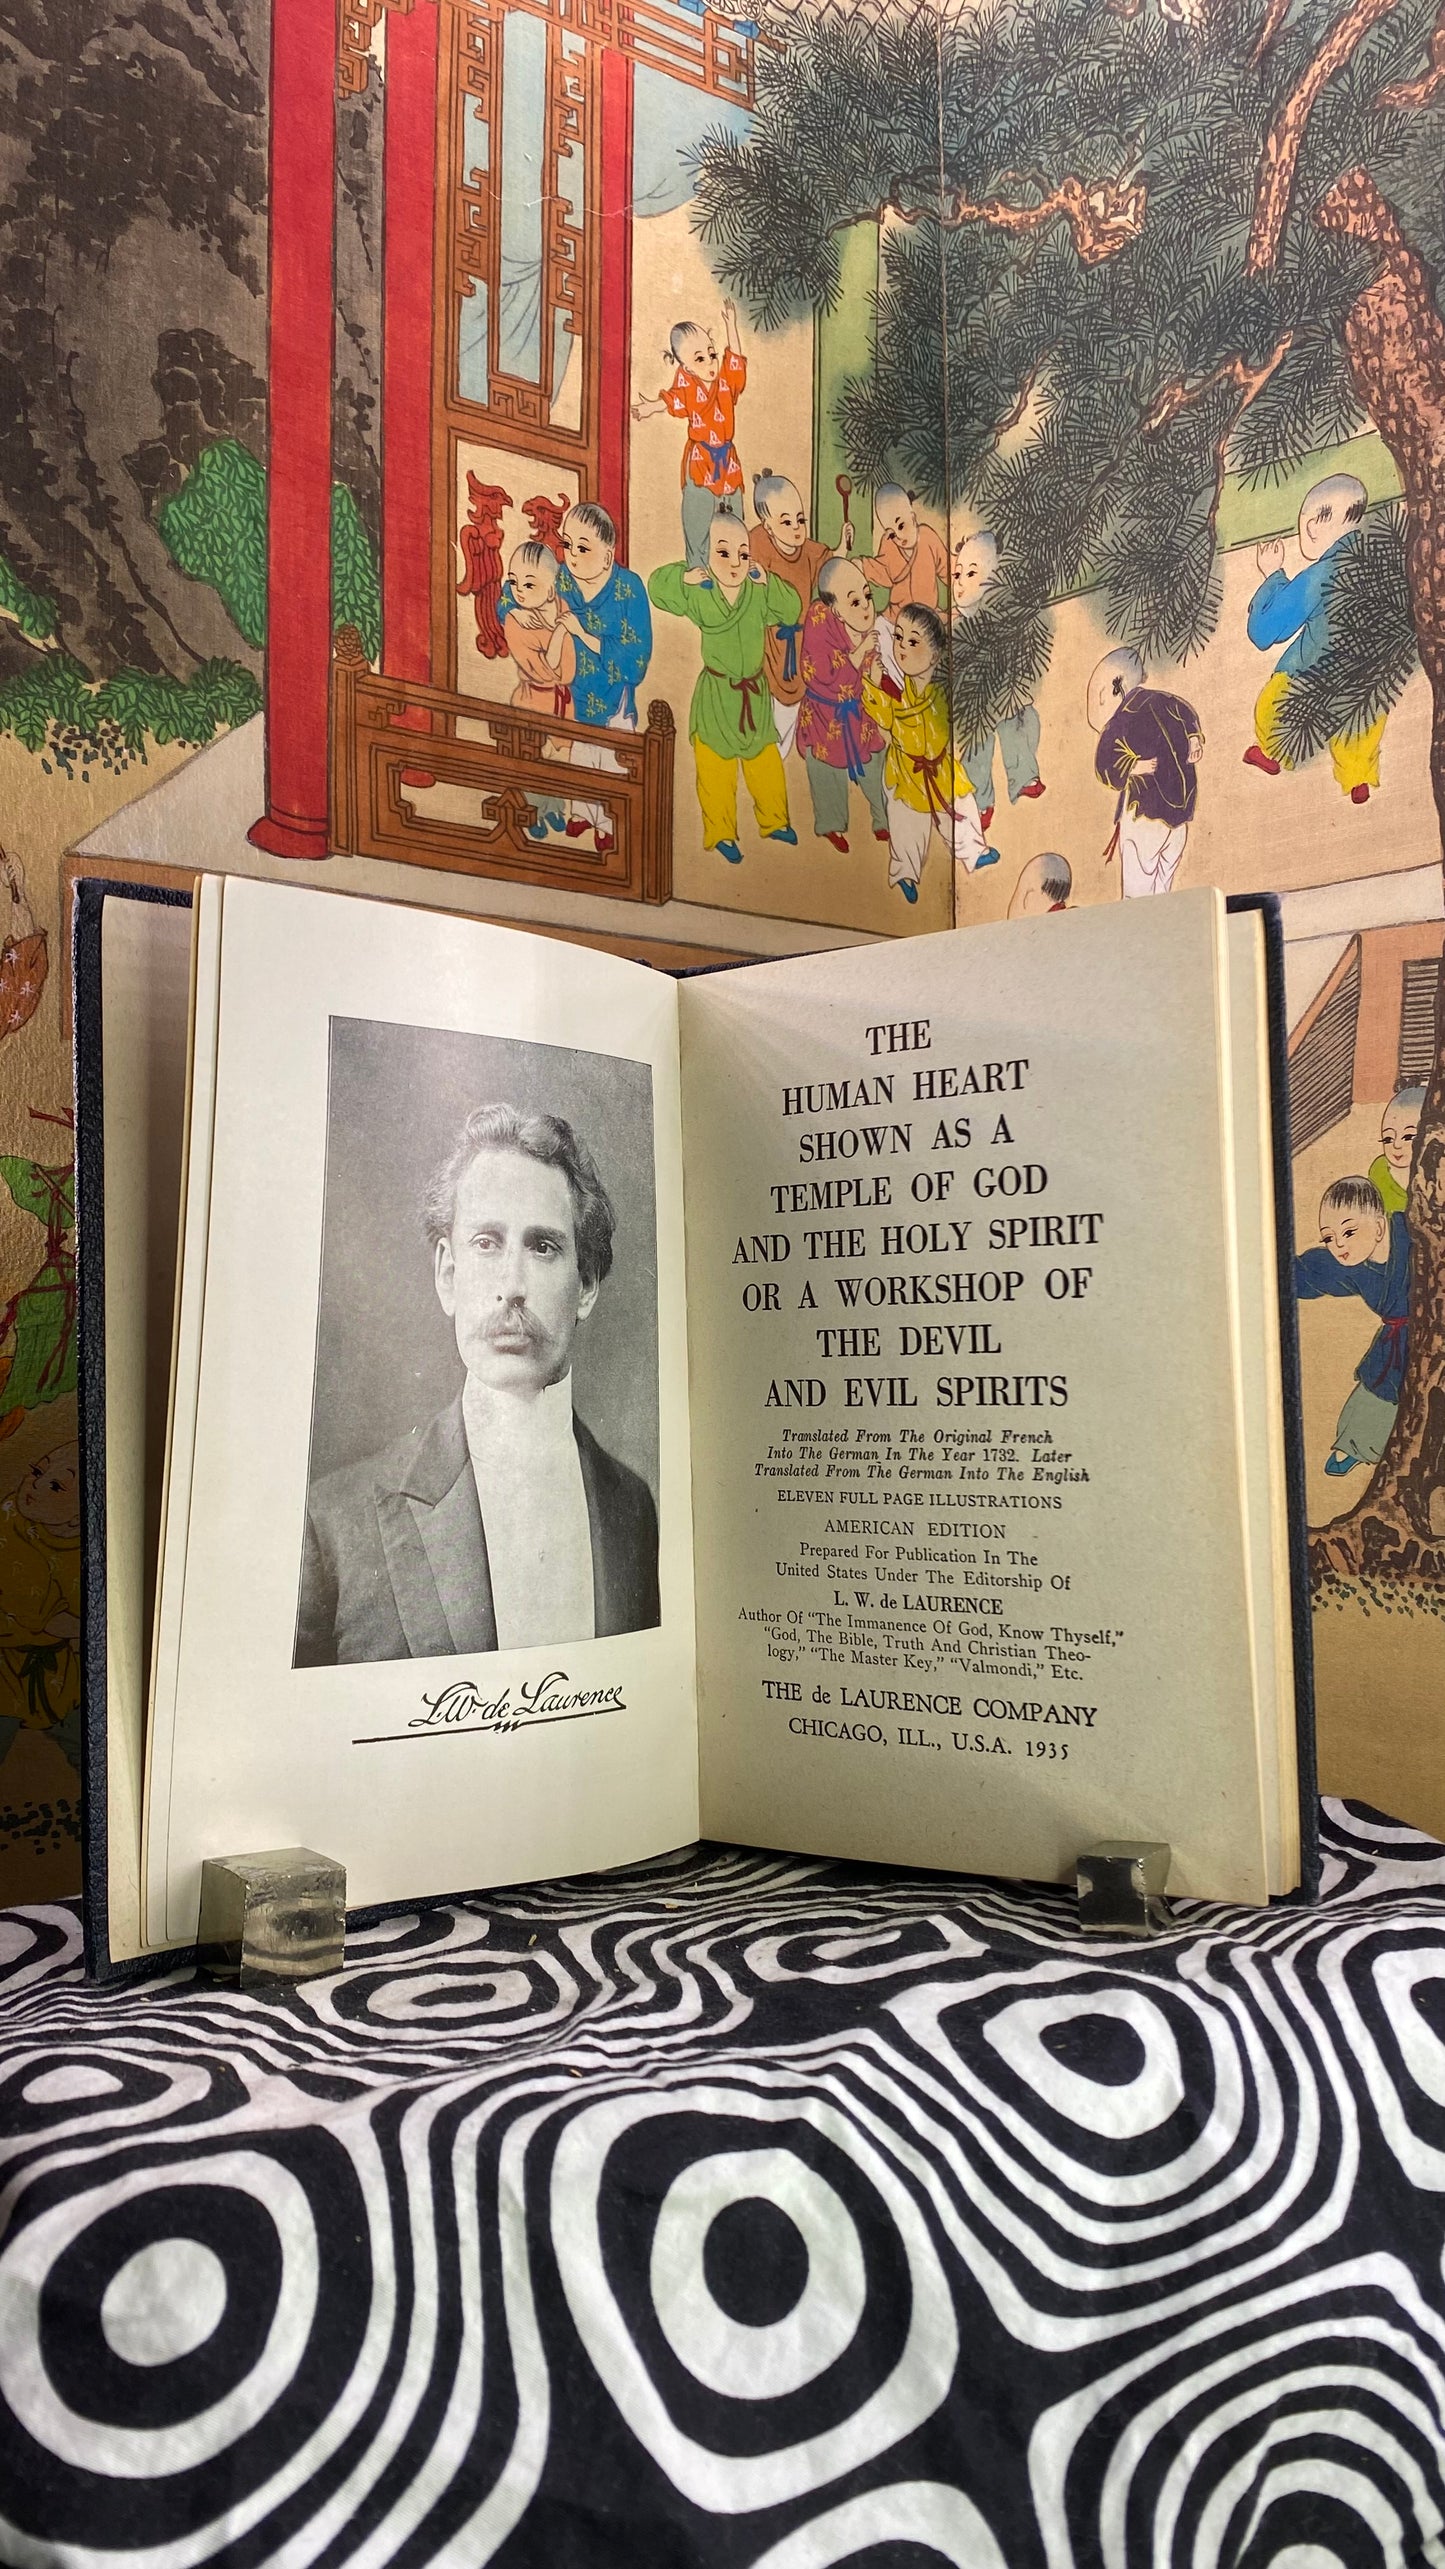 L.W. de Laurence
THE
HUMAN HEART
SHOWN AS A
TEMPLE OF GOD
AND THE HOLY SPIRIT
OR A WORKSHOP OF
THE DEVIL
AND EVIL SPIRITS
Translated From The Original French
Into The German In The Year 1732. Later
Translated From The German Into The English
ELEVEN FULL PAGE ILLUSTRATIONS
AMERICAN EDITION
Prepared For Publication In The
United States Under The Editorship Of
L. W. de LAURENCE
Author Of "The Immanence Of God, Know Thyself,"
"God, The Bible, Truth And Christian Theo-
logy," "The Master Key," "Valmondi," Etc.
THE de LAURENCE COMPANY
CHICAGO, ILL., U.S.A. 1935